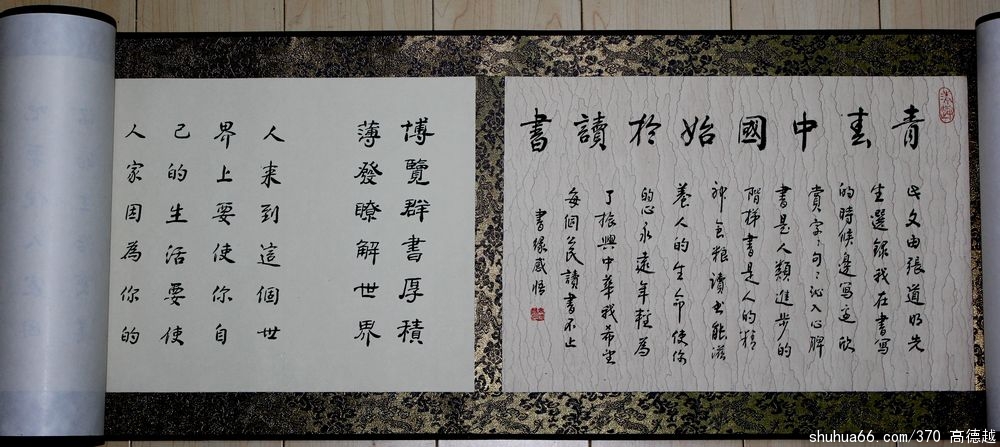 青春中國始於讀書
此文由張道明先
生選錄我在書寫
的時候邊寫邊欣
賞字字句句沁入心脾
書是人類進步的
階梯書是人的精
神食粮讀书能滋
養人的生命使你
的心永遠年輕為
了振興中華我希望
每個公民讀書不止
書缘感悟
博覽群書厚積
薄發瞭解世界
人来到這個世
界上要使你自
己的生活要使
人家因為你的
shuhua66.com/370 高德越